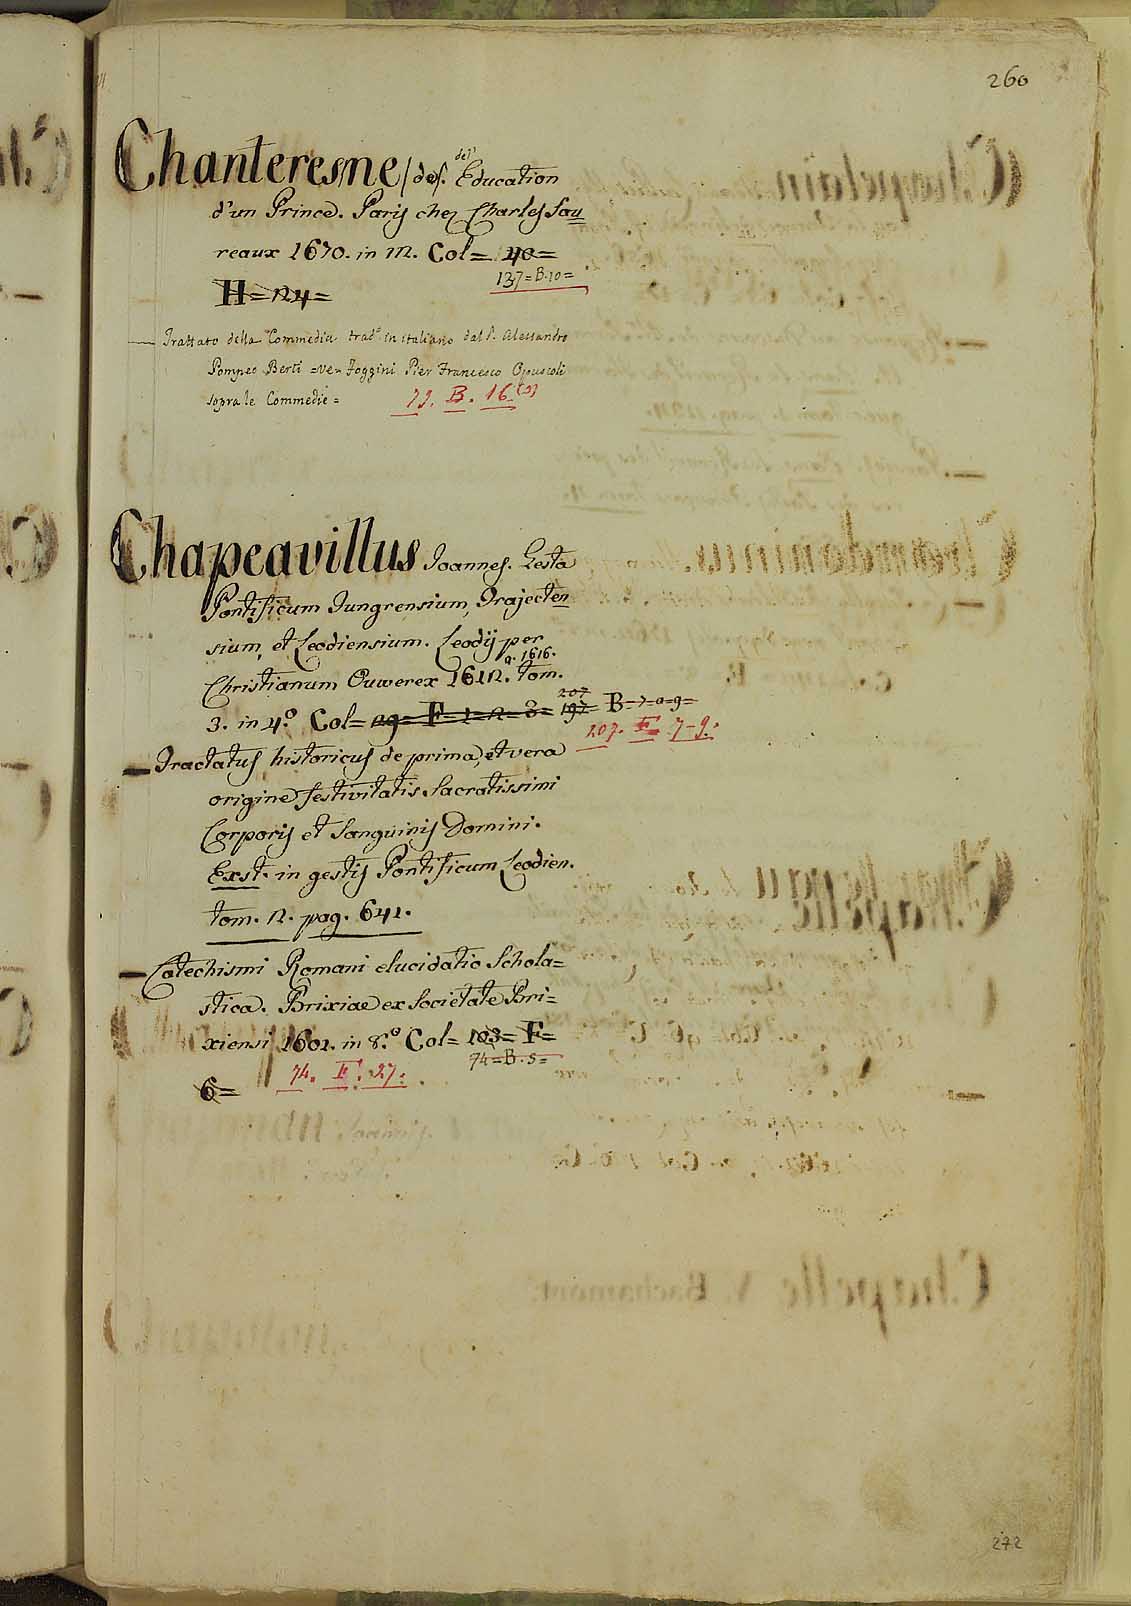 260
Chanteresne (de). de l' Education
d'un Prince. Paris chez Charles Sau=
reaux 1670. in 12. Col= 40=
137=B.10=
H=124=
Trattato della Commedia trad.º in italiano dal P. Alessandro
Pompeo Berti =ve= Foggini Pier Francesco Opuscoli
sopra le Commedie=
79. B. 16.(3)
Chapeavillus Joannes. Gesta
Pontificum Tungrensium, Trajecten=
sium, et Leodiensium. Leodij per
Christianum Ouwerex 1612. a. 1616. tom.
3. in 4.º Col= 29= F=1=2=3= 197= 207 B=7=8=9=
207. F. 7-9.
— Tractatus historicus de prima, et vera
origine festivitatis Sacratissimi
Corporis et Sanguinis Domini.
Exst. in gestis Pontificum Leodien.
tom. 2. pag. 641.
— Catechismi Romani elucidatio Schola=
stica. Brixiae ex Societate Bri=
xiensi 1601. in 8.º Col= 103= F=
74=B.5=
6=
74. F. 27.
272